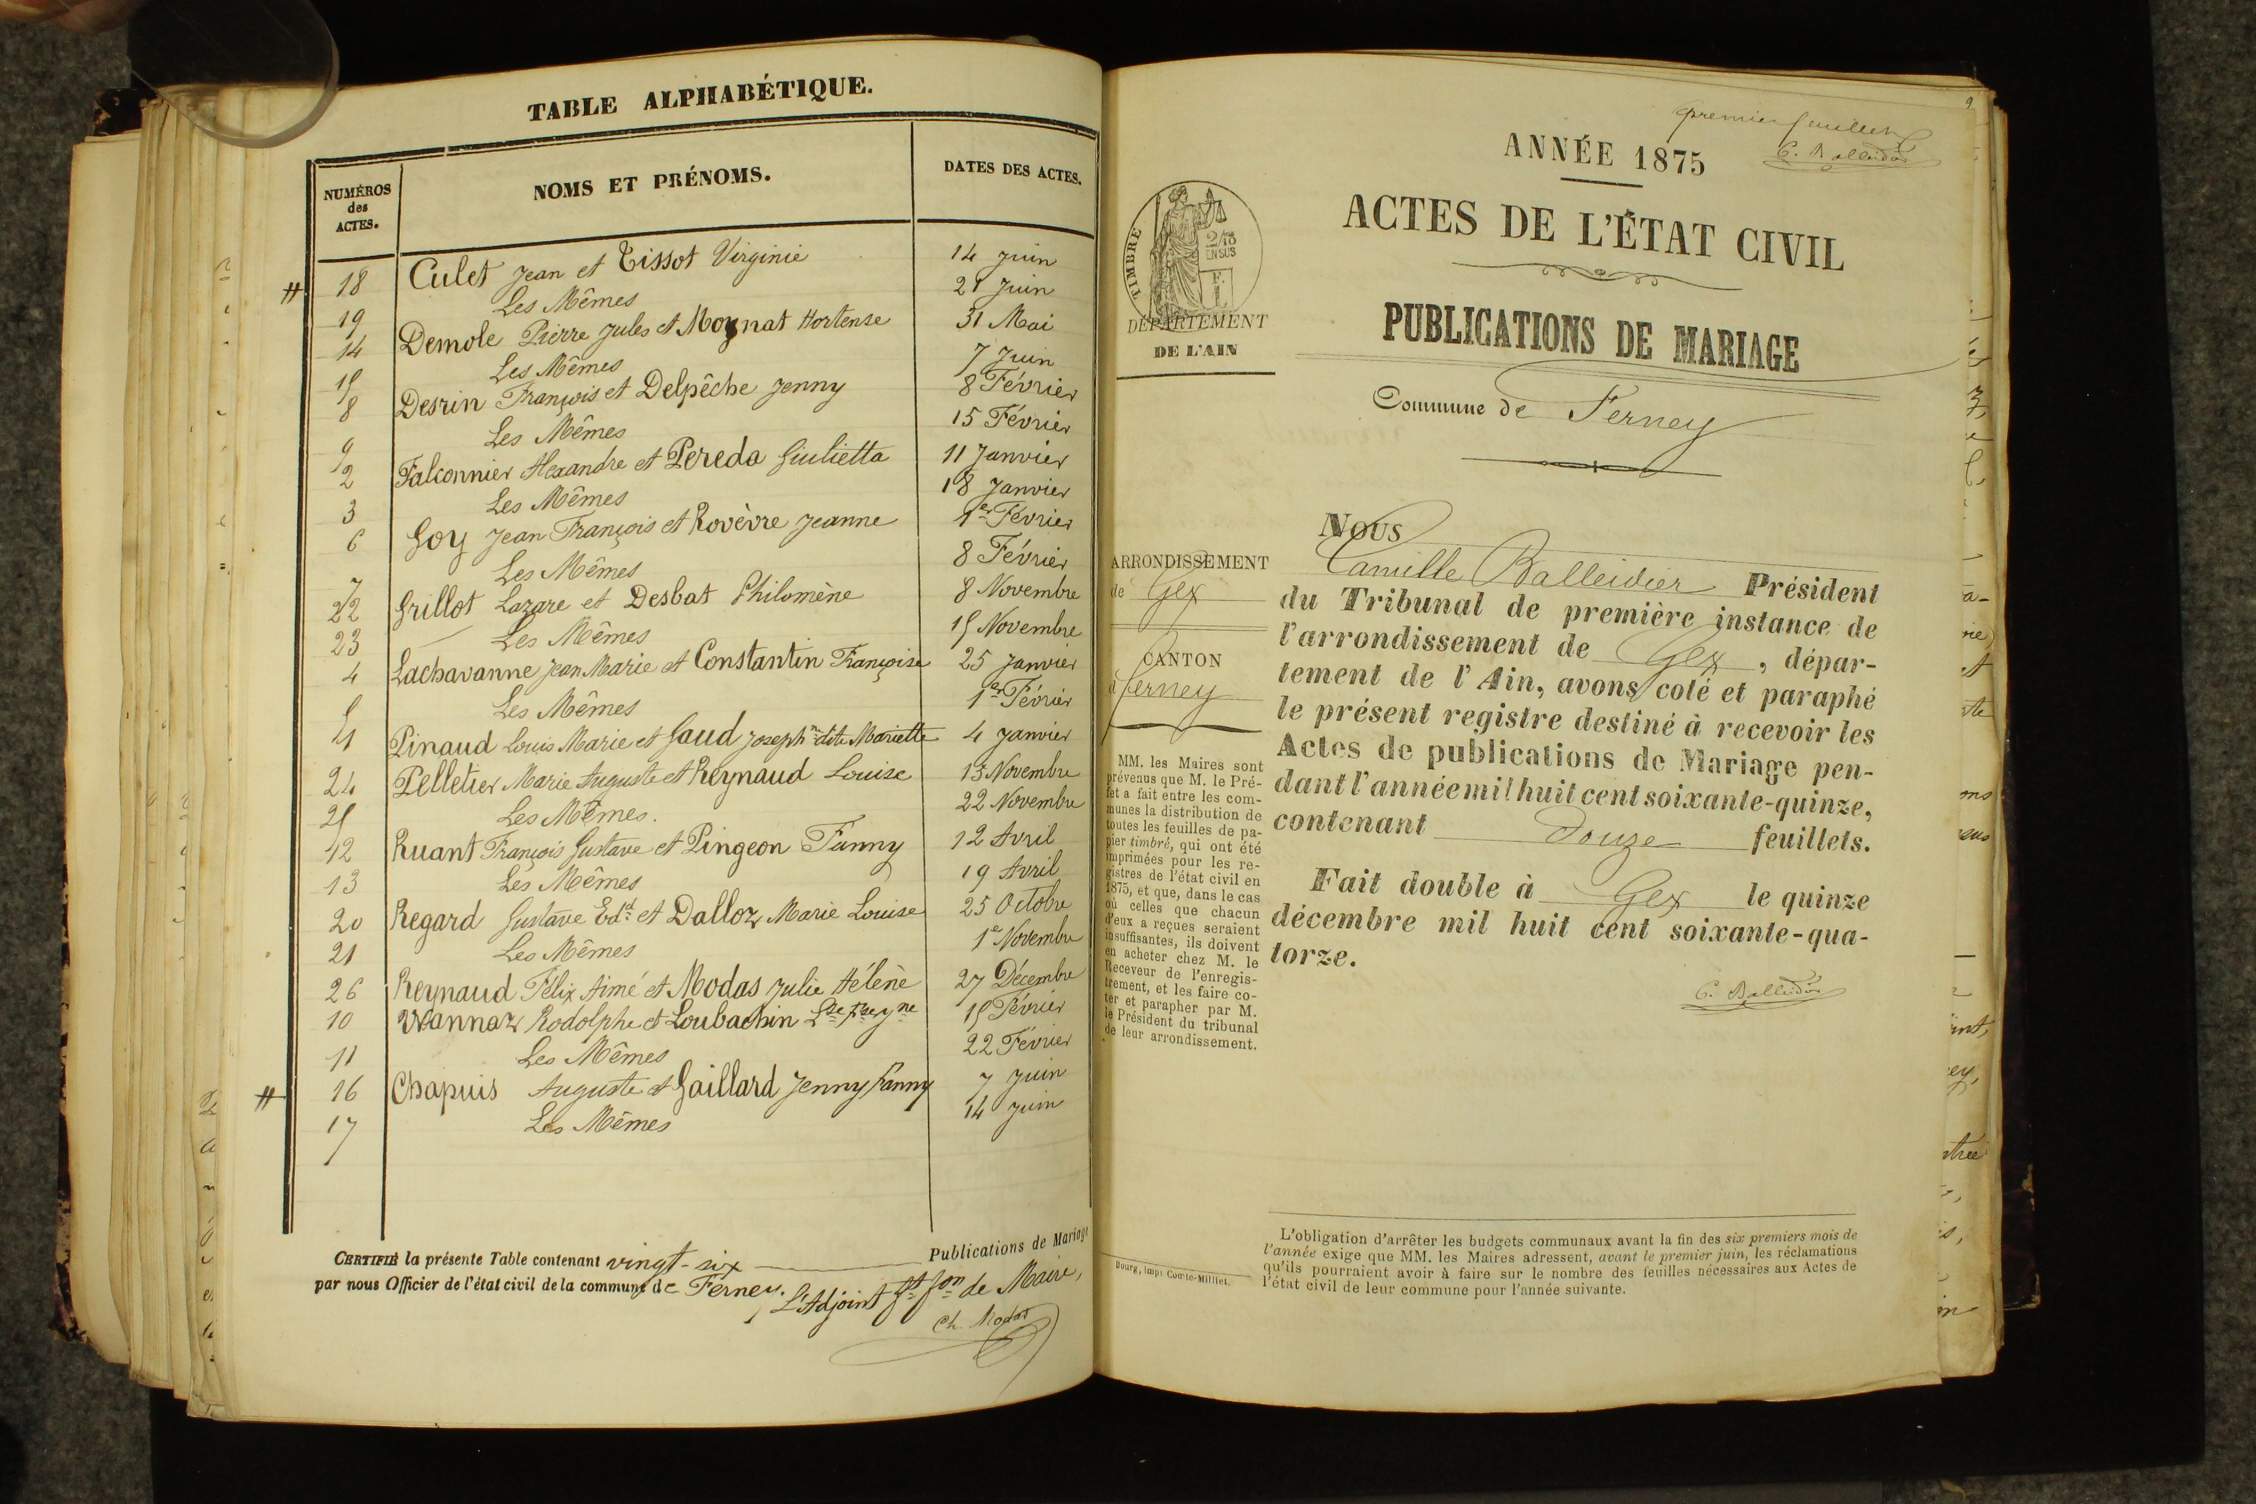 TABLE ALPHABÉTIQUE.
NUMÉROS des ACTES.
NOMS ET PRÉNOMS.
DATES DES ACTES.
18 Culet Jean et Tissot Virginie 14 Juin
19 Les Mêmes 21 Juin
14 Demole Pierre Jules et Moynat Hortense 31 Mai
15 Les Mêmes 7 Juin
8 Desrin François et Delpêche Jenny 8 Février
9 Les Mêmes 15 Février
2 Falconnier Alexandre et Pereda Giulietta 11 Janvier
3 Les Mêmes 18 Janvier
6 Goy Jean François et Rovèvre Jeanne 1er Février
7 Les Mêmes 8 Février
22 Grillot Lazare et Desbat Philomène 8 Novembre
23 Les Mêmes 15 Novembre
4 Lachavanne Jean Marie et Constantin Françoise 25 Janvier
5 Les Mêmes 1er Février
1 Pinaud Louis Marie et Gaud Joseph.ne dite Mariette 4 Janvier
24 Pelletier Marie Auguste et Reynaud Louise 15 Novembre
25 Les Mêmes. 22 Novembre
12 Ruant François Gustave et Pingeon Fanny 12 Avril
13 Les Mêmes 19 Avril
20 Regard Gustave Edd et Dalloz Marie Louise 25 Octobre
21 Les Mêmes 1e Novembre
26 Reynaud Félix Aimé et Modas Julie Hélène 27 Décembre
10 Wannaz Rodolphe et Loubachin 15 Février
11 Les Mêmes 22 Février
16 Chapuis Auguste et Gaillard Jenny Fanny 7 Juin
17 Les Mêmes 14 Juin
CERTIFIÉ la présente Table contenant vingt-six Publications de Mariage
par nous Officier de l'état civil de la commune de Ferney.
L'Adjoint ft fon de Maire,
Ch Modas
premier feuillet
C. Balleidier
ANNÉE 1875
ACTES DE L'ÉTAT CIVIL
PUBLICATIONS DE MARIAGE
Commune de Ferney
TIMBRE
2/10
EN SUS
DÉPARTEMENT
DE L'AIN
ARRONDISSEMENT
de Gex
CANTON
d Ferney
MM. les Maires sont
prévenus que M. le Pré-
fet a fait entre les com-
munes la distribution de
toutes les feuilles de pa-
pier timbré, qui ont été
imprimées pour les re-
gistres de l'état civil en
1875, et que, dans le cas
où celles que chacun
d'eux a reçues seraient
insuffisantes, ils doivent
en acheter chez M. le
Receveur de l'enregis-
trement, et les faire co-
ter et parapher par M.
le Président du tribunal
de leur arrondissement.
Bourg, imp. Comte-Milliet.
NOUS
Camille Balleidier Président
du Tribunal de première instance de
l'arrondissement de Gex, dépar-
tement de l'Ain, avons coté et paraphé
le présent registre destiné à recevoir les
Actes de publications de Mariage pen-
dant l'année mil huit cent soixante-quinze,
contenant Douze feuillets.
Fait double à Gex le quinze
décembre mil huit cent soixante-qua-
torze.
C. Balleidier
L'obligation d'arrêter les budgets communaux avant la fin des six premiers mois de
l'année exige que MM. les Maires adressent, avant le premier juin, les réclamations
qu'ils pourraient avoir à faire sur le nombre des feuilles nécessaires aux Actes de
l'état civil de leur commune pour l'année suivante.